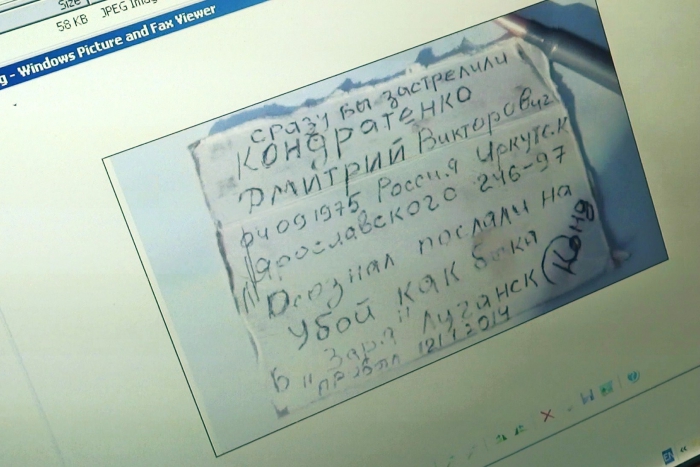 Size
58 KB JPEG Imag
g - Windows Picture and Fax Viewer
сразу бы застрелили
КОНДРАТЕНКО
Дмитрий Викторович
РЧ 09 1975 Россия Иркутск
Ярославского 246-97
Осознал послали на
убой как быка
Б "Заря" Луганск Конд
прибыл 12 2014
EN